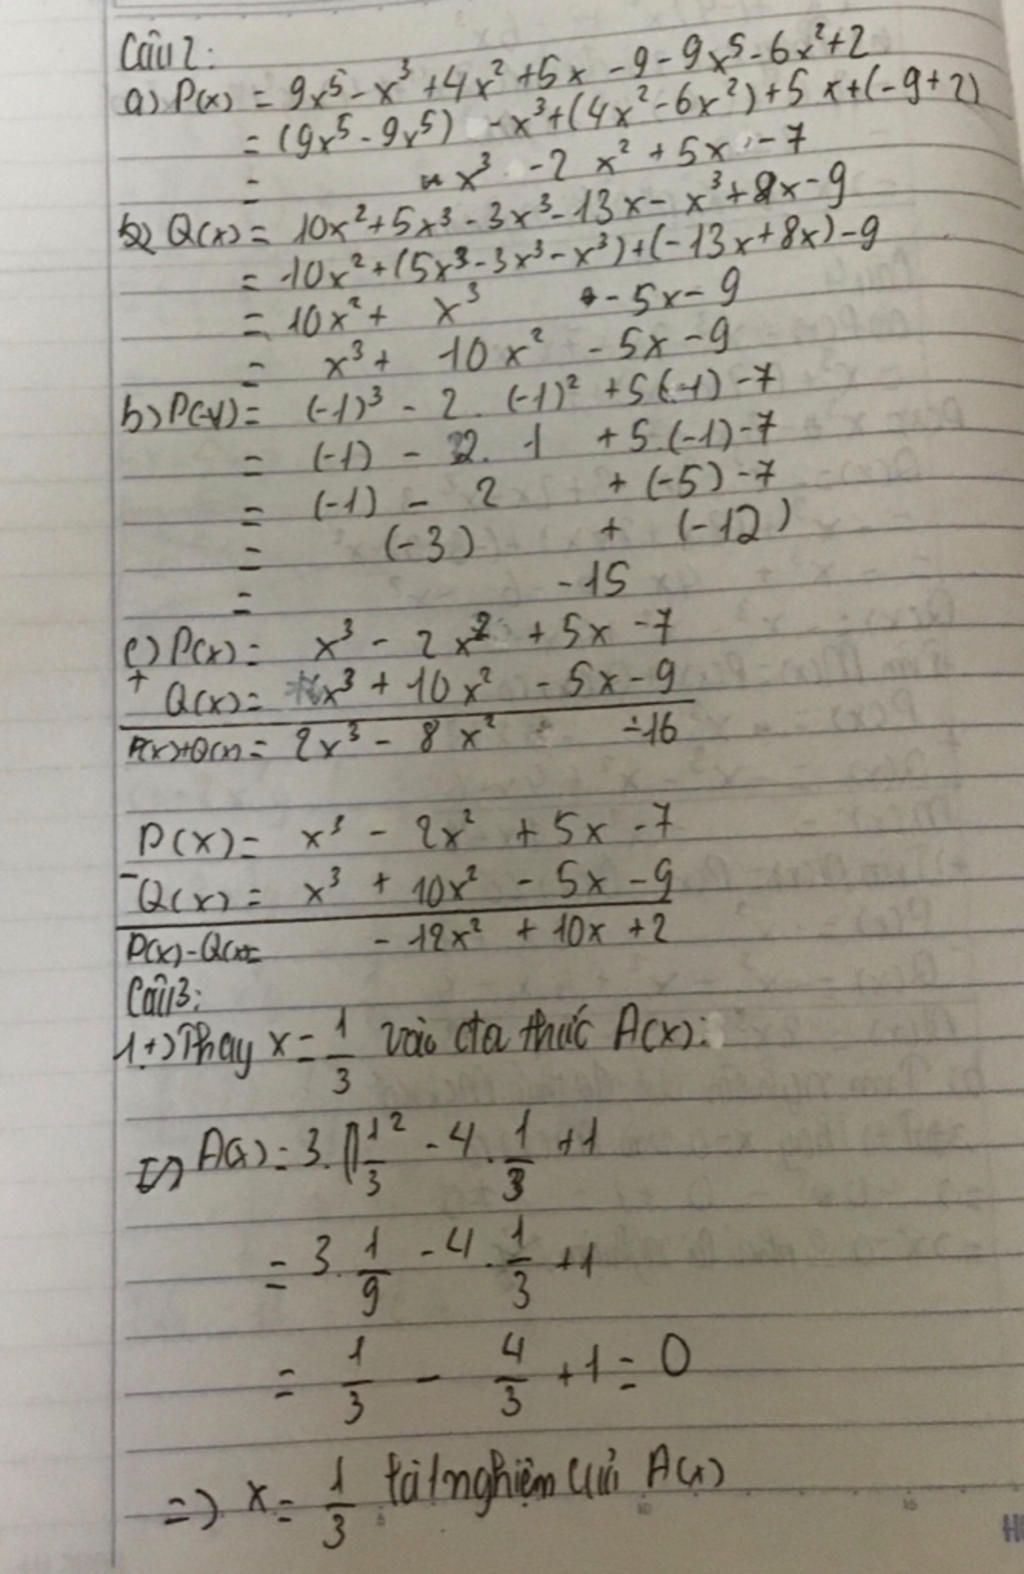 Câu 2:
a) P(x) = 9x⁵ - x³ + 4x² + 5x - 9 - 9x⁵ - 6x² + 2
= (9x⁵ - 9x⁵) - x³ + (4x² - 6x²) + 5x + (-9 + 2)
= - x³ - 2x² + 5x - 7
Q(x) = 10x² + 5x³ - 3x³ - 13x - x³ + 8x - 9
= 10x² + (5x³ - 3x³ - x³) + (-13x + 8x) - 9
= 10x² + x³ - 5x - 9
= x³ + 10x² - 5x - 9
b) P(-1) = (-1)³ - 2. (-1)² + 5(-1) - 7
= (-1) - 2. 1 + 5.(-1) - 7
= (-1) - 2 + (-5) - 7
= (-3) + (-12)
= -15
c) P(x) = x³ - 2x² + 5x - 7
+ Q(x) = x³ + 10x² - 5x - 9
P(x)+Q(x) = 2x³ - 8x² - 16
P(x) = x³ - 2x² + 5x - 7
- Q(x) = x³ + 10x² - 5x - 9
P(x) - Q(x) = - 12x² + 10x + 2
Câu 3:
1.+) Thay x = 1/3 vào đa thức A(x):
A(x) = 3. 1/3² - 4. 1/3 + 1
= 3. 1/9 - 4. 1/3 + 1
= 1/3 - 4/3 + 1 = 0
=> x = 1/3 là 1 nghiệm của A(x)